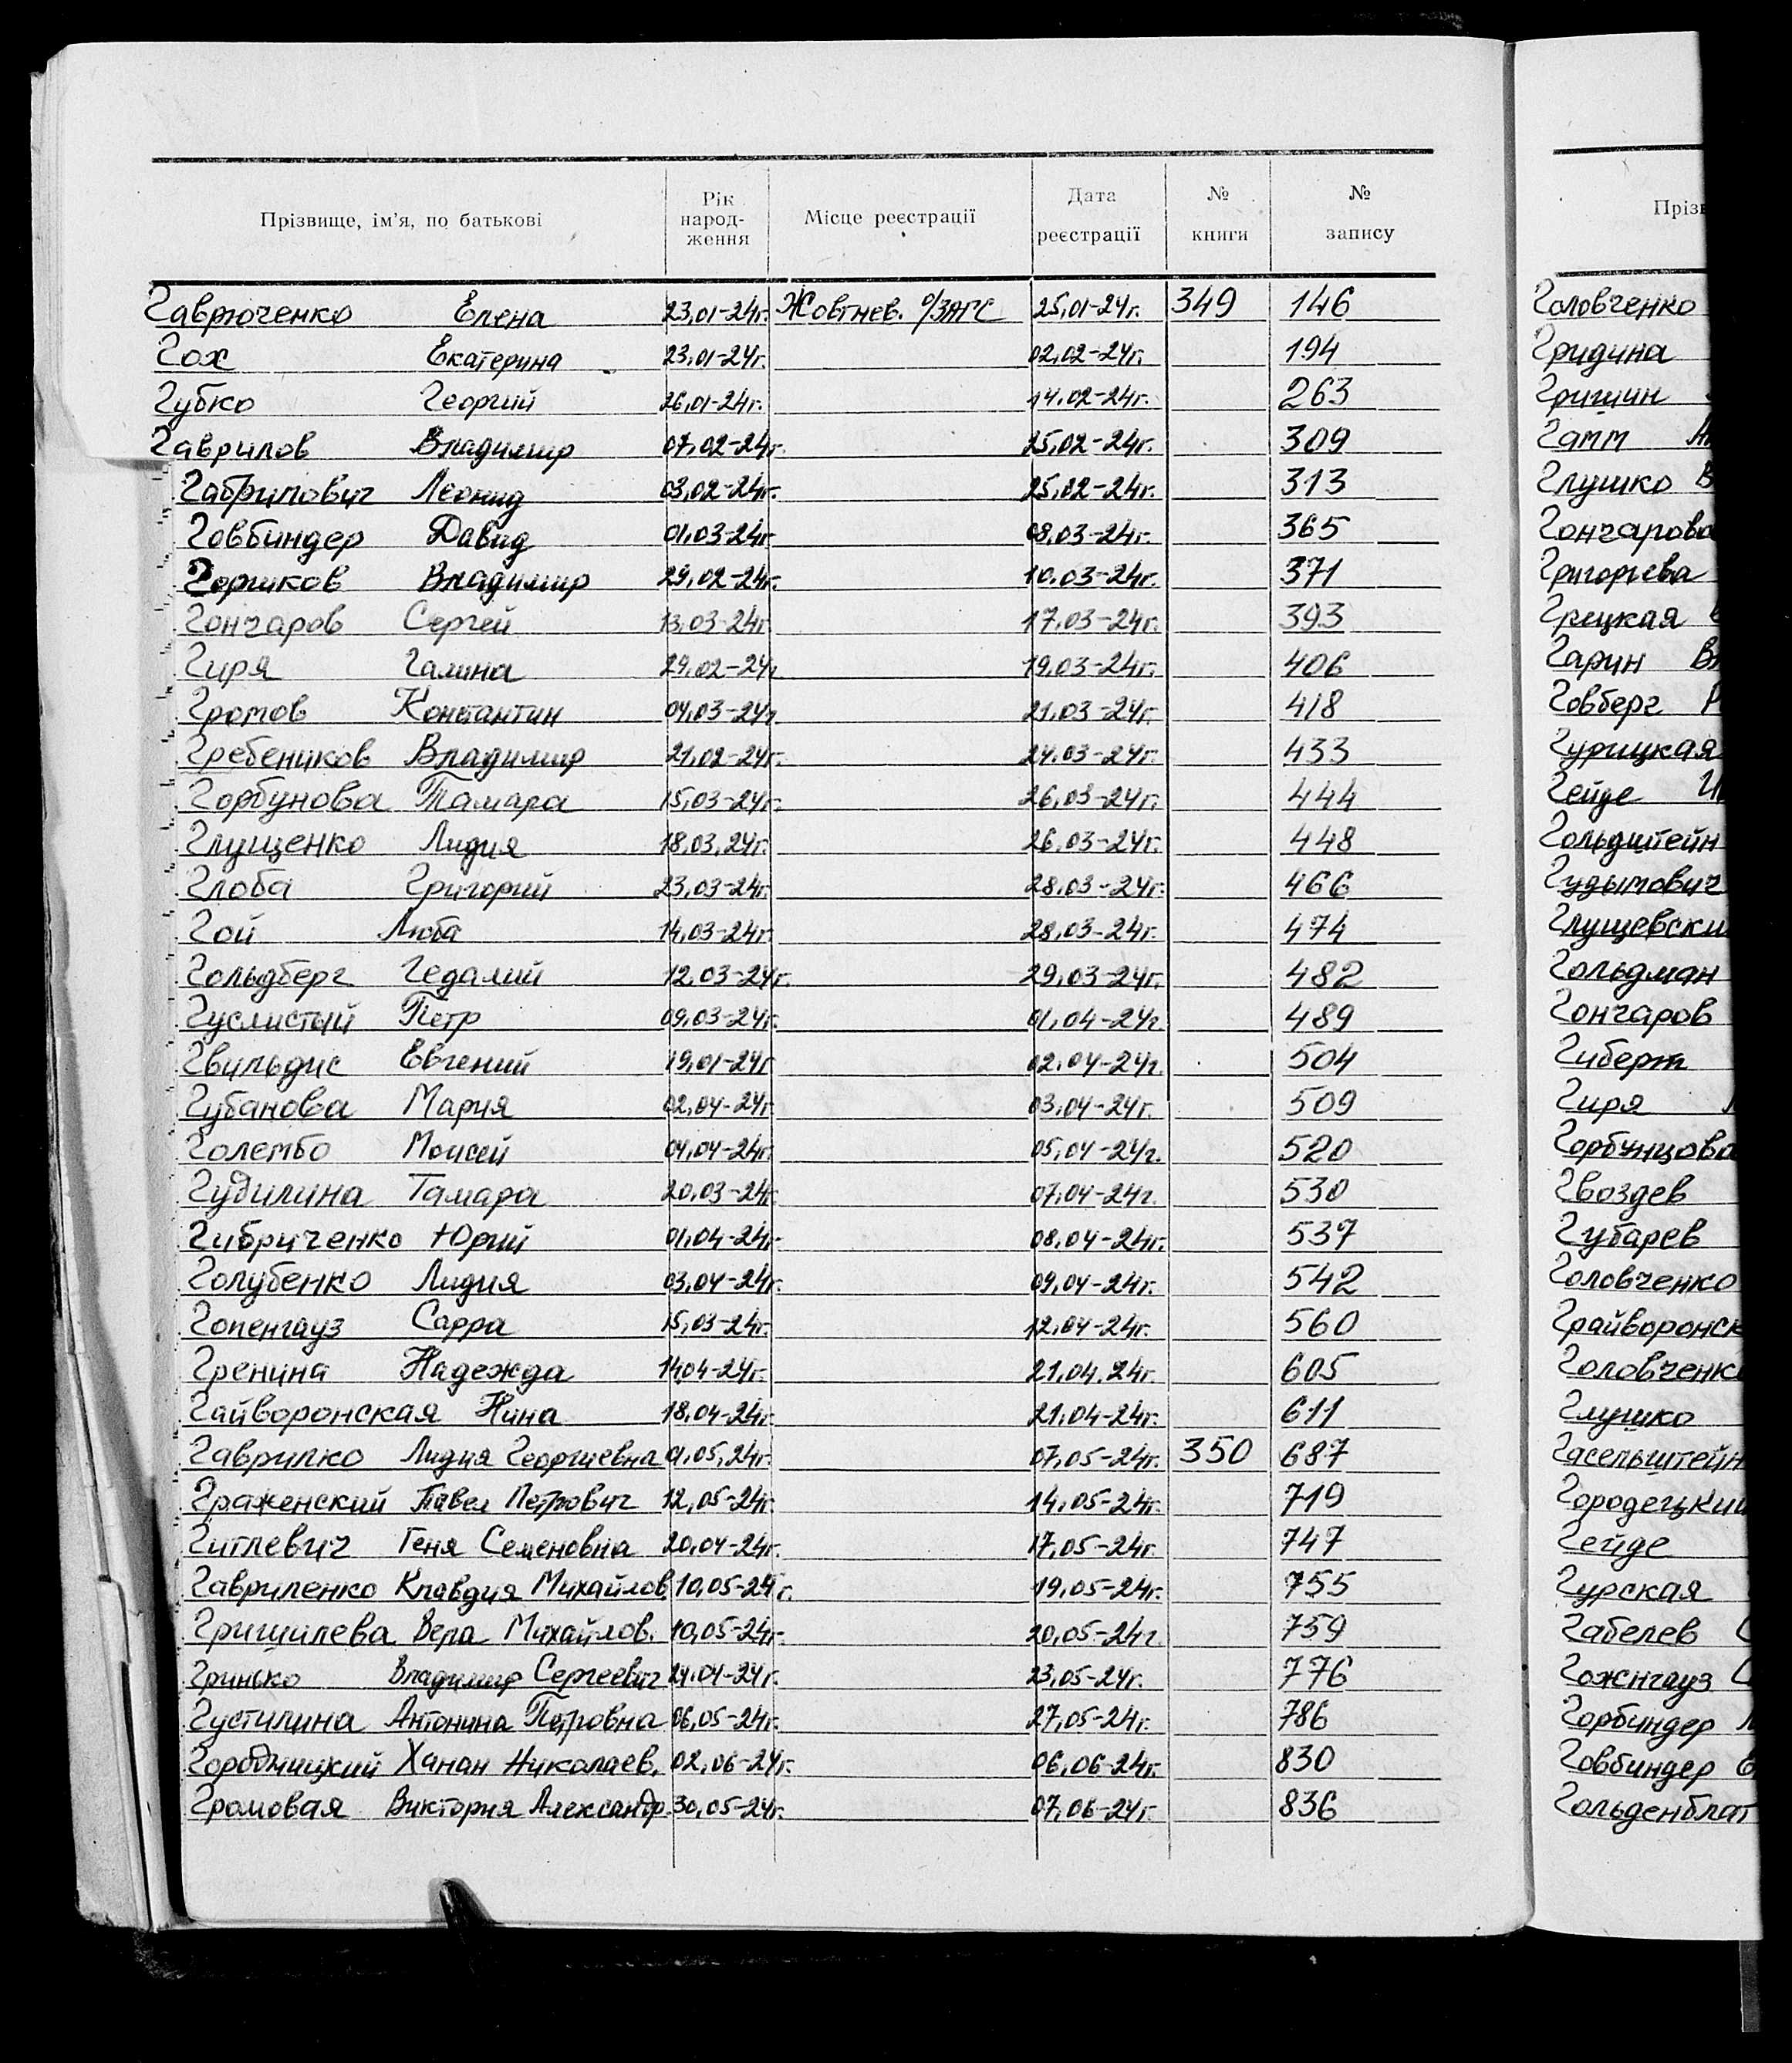 Прізвище, ім'я, по батькові Рік народ-ження Місце реєстрації Дата реєстрації № книги № запису
Гаврюченко Елена 23.01-24г. Жовтнев. о/ЗАГС 25.01-24г. 349 146
Гох Екатерина 23.01-24г. 02.02-24г. 194
Губко Георгий 26.01-24г. 14.02-24г. 263
Гаврилов Владимир 07.02-24г. 25.02-24г. 309
Габрилович Леонид 03.02-24г. 25.02-24г. 313
Говбиндер Давид 01.03-24г 08.03-24г. 365
Горшков Владимир 29.02-24г. 10.03-24г. 371
Гончаров Сергей 13.03-24г 17.03-24г. 393
Гиря Галина 29.02-24г 19.03-24г. 406
Громов Константин 04.03-24г 21.03-24г. 418
Гребеников Владимир 21.02-24г. 24.03-24г. 433
Горбунова Тамара 15.03-24г. 26.03-24г. 444
Глущенко Лидия 18.03.24г. 26.03-24г. 448
Глоба Григорий 23.03-24г. 28.03-24г. 466
Гой Люба 14.03-24г 28.03-24г. 474
Гольдберг Гедалий 12.03-24г. 29.03-24г. 482
Гуслистый Петр 09.03-24г. 01.04-24г 489
Гвильдис Евгений 19.01-24г 02.04-24г. 504
Губанова Мария 02.04-24г 03.04-24г. 509
Голембо Моисей 04.04-24г. 05.04-24г. 520
Гудилина Тамара 20.03-24г. 07.04-24г. 530
Гибриченко Юрий 01.04-24г. 08.04-24г. 537
Голубенко Лидия 03.04-24г. 09.04-24г. 542
Гопенгауз Сарра 15.03-24г. 12.04-24г. 560
Гренина Надежда 14.04-24г. 21.04.24г. 605
Гайворонская Нина 18.04-24г. 21.04-24г. 611
Гаврилко Лидия Георгиевна 01.05.24г. 07.05-24г. 350 687
Граженский Павел Петрович 12.05-24г. 14.05-24г. 719
Гитлевич Геня Семеновна 20.04-24г. 17.05-24г. 747
Гавриленко Клавдия Михайлов. 10.05-24г. 19.05-24г. 755
Гришилева Вера Михайлов. 10.05-24г. 20.05-24г 759
Гринько Владимир Сергеевич 24.04-24г. 23.05-24г. 776
Густилина Антонина Петровна 06.05-24г. 27.05-24г. 786
Ханан Николаев. 02.06-24г. 06.06-24г. 830
Громовая Виктория Александр. 30.05-24г. 07.06-24г. 836
Прізв
Головченко
Гридина
Гришин
Гамм
Глушко В
Гончарова
Григорьева
Грецкая
Гарин Вл
Говберг Р
Гурицкая
Гейде
Гольдштейн
Гудымович
Глущевски
Гольдман
Гончаров
Гиберт
Гиря
Горбунцова
Гвоздев
Губарев
Головченко
Грайворонск
Головченк
Глушко
Гасельштейн
Городецкий
Гейде
Гурская
Габелев С
Гожнгауз С
Горбиндер
Говбиндер
Гольденблат